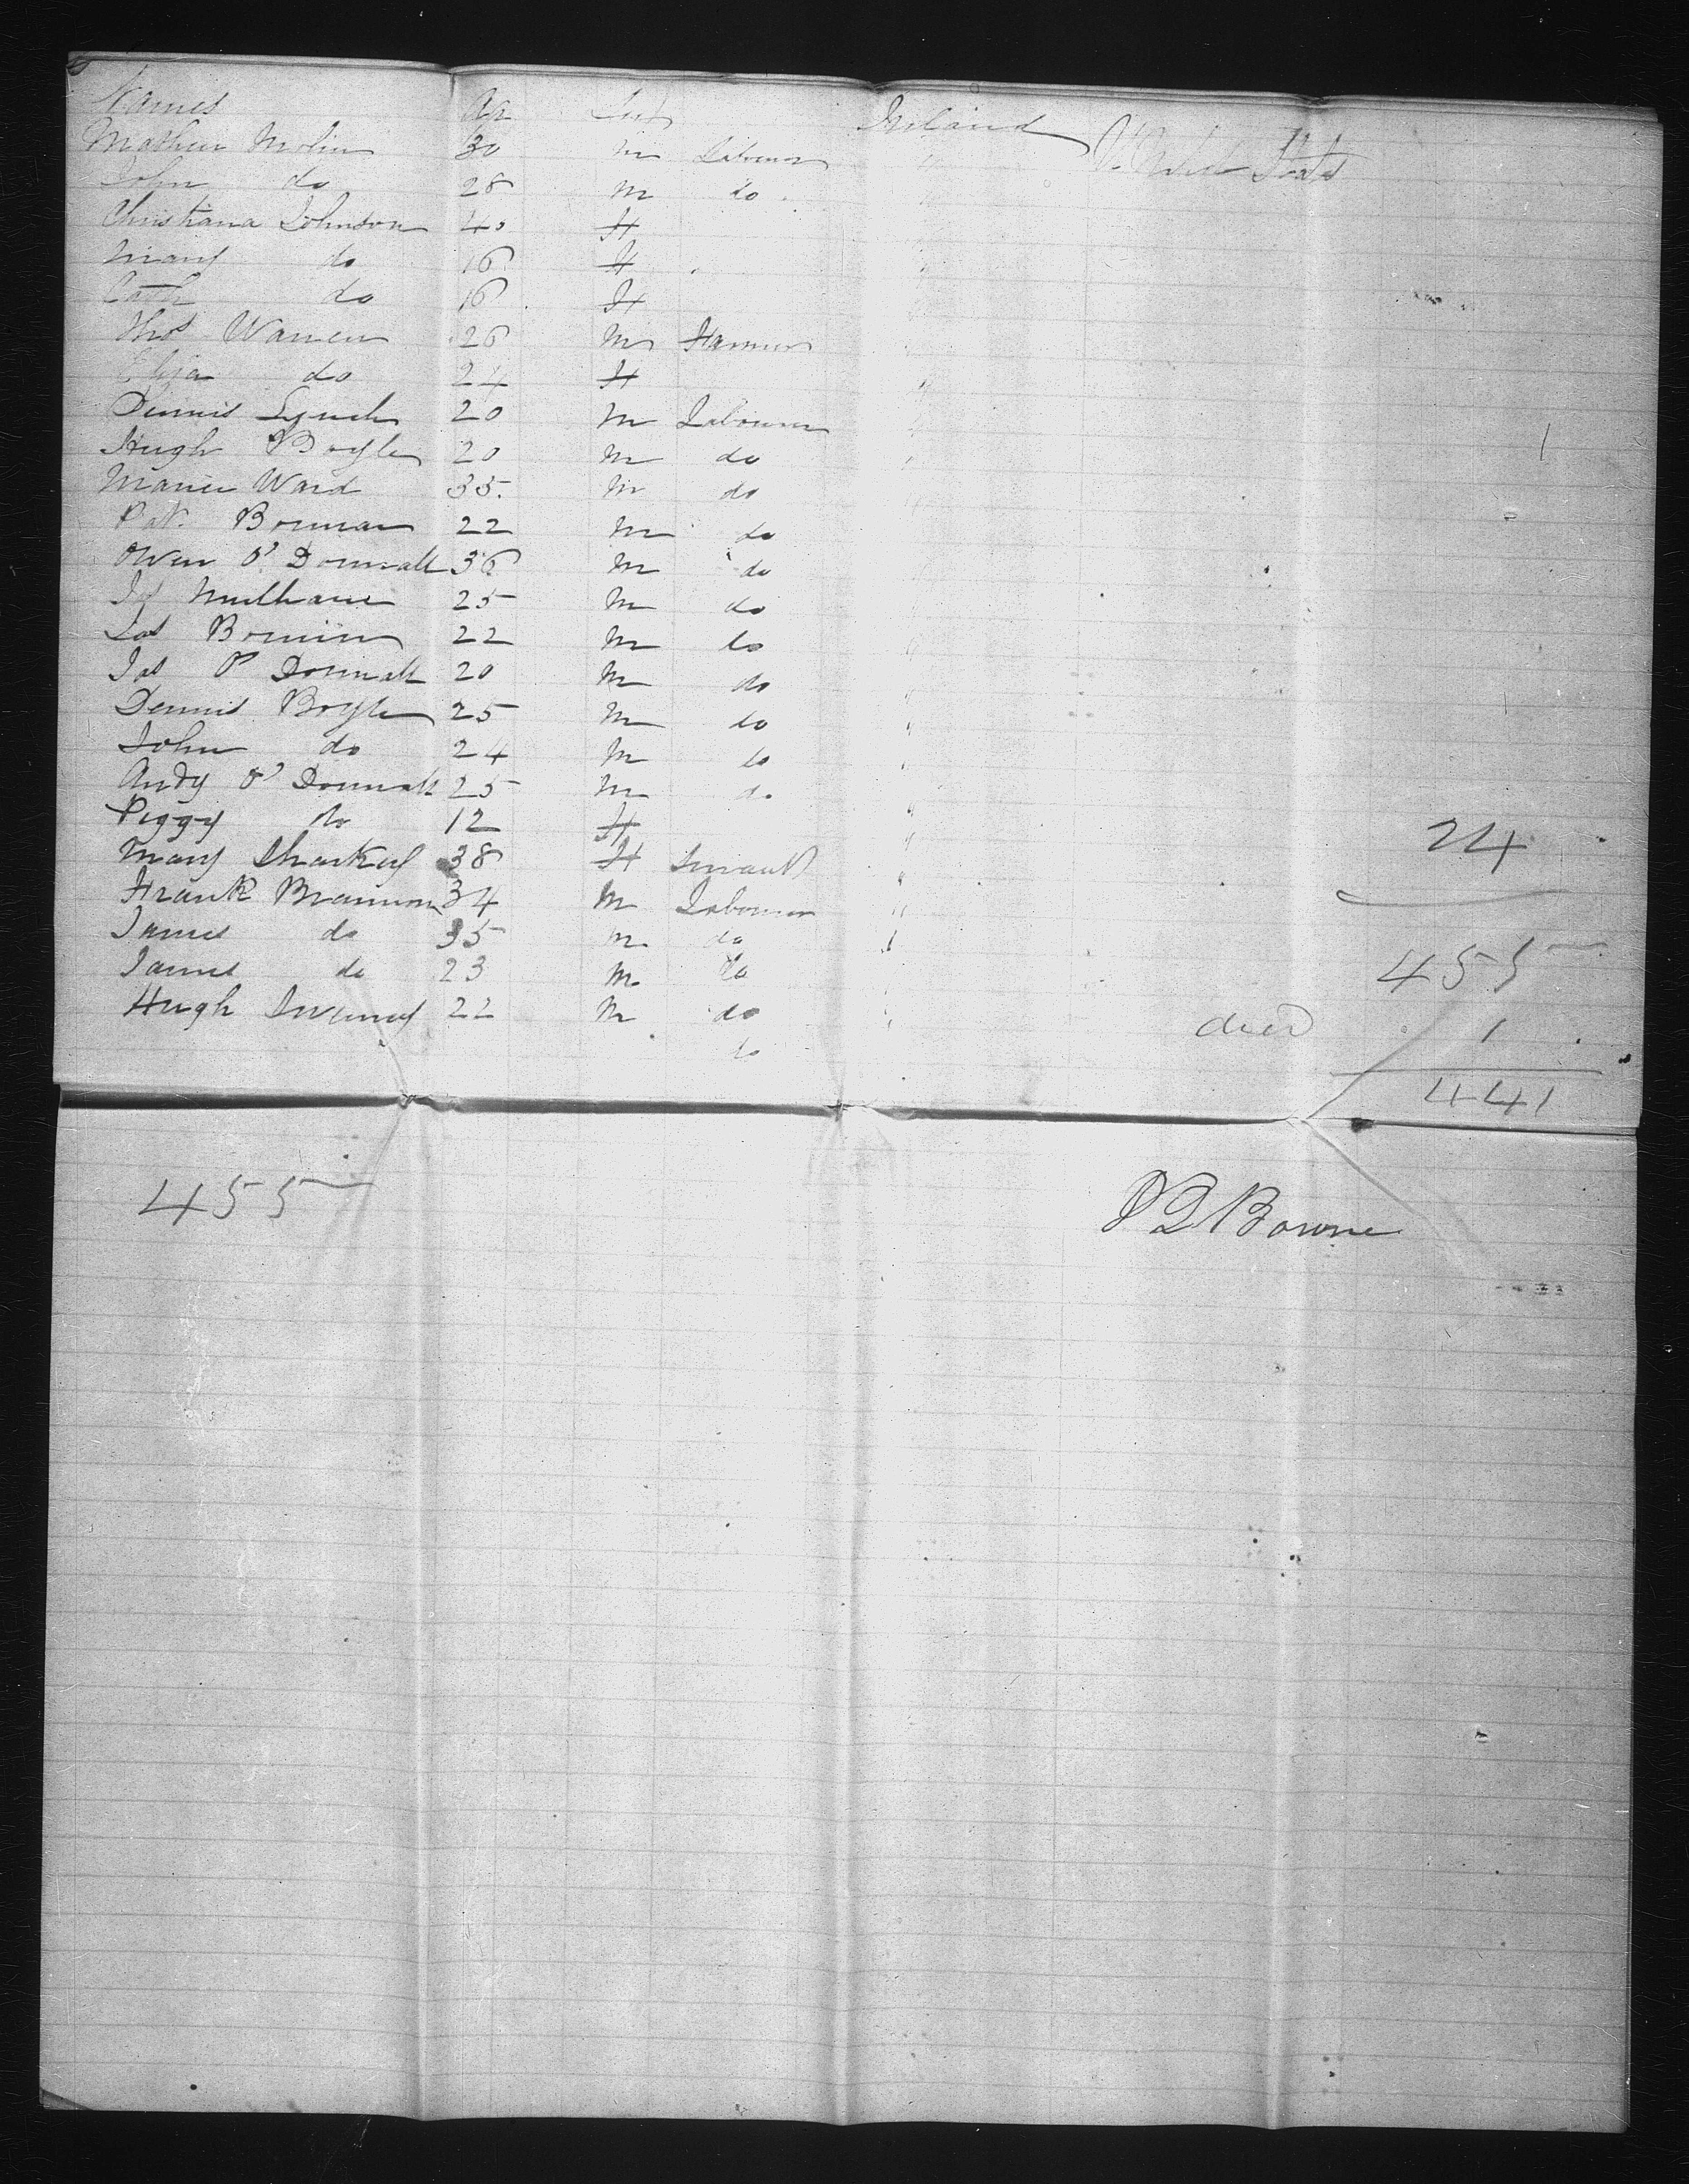 Names Age Sex Ireland United States
Mathew Molin 30 m Labourer "
John do 28 m do "
Christiana Johnson 40 F
Mary do 16 F "
Cath do 16 F
Thos Warren 26 m Farmer "
Eliza do 24 F "
Dennis Lynch 20 m Labourer "
Hugh Boyle 20 m do " 1
Ward 35 m do "
Pat. Bonnar 22 m do
Owen O'Donnall 36 m do
Mulhane 25 m do
Jas 22 m do "
Jas O'Donnall 20 m do "
Dennis Boyle 25 m do "
John do 24 m do "
Andy O'Donnall 25 m do
Peggy do 12 F " 24
Mary Sharkey 38 F Servant "
Frank Brannon 34 m Labourer "
James do 35 m do " 455
James do 23 m do "
Hugh Sweeney 22 m do " died 1
do
441
455
Bowne